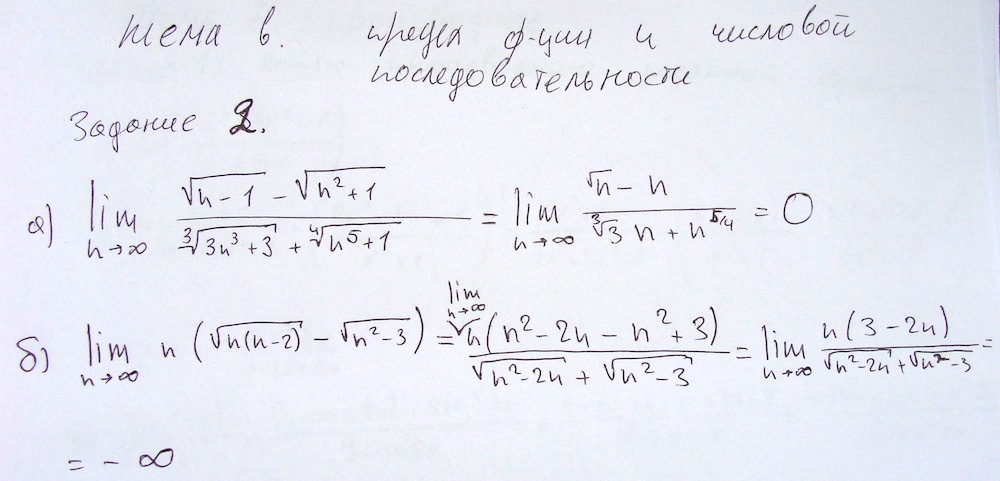 тема в. предел ф-ции и числовой
последовательности
Задание 2.
а) lim n→∞ (√(n-1) - √(n²+1)) / (∛(3n³+3) + ∜(n⁵+1)) = lim n→∞ (√n - n) / (∛3 n + n^(5/4)) = 0
б) lim n→∞ n (√(n(n-2)) - √(n²-3)) = lim n→∞ n(n²-2n-n²+3) / (√(n²-2n) + √(n²-3)) = lim n→∞ n(3-2n) / (√(n²-2n) + √(n²-3)) =
= -∞